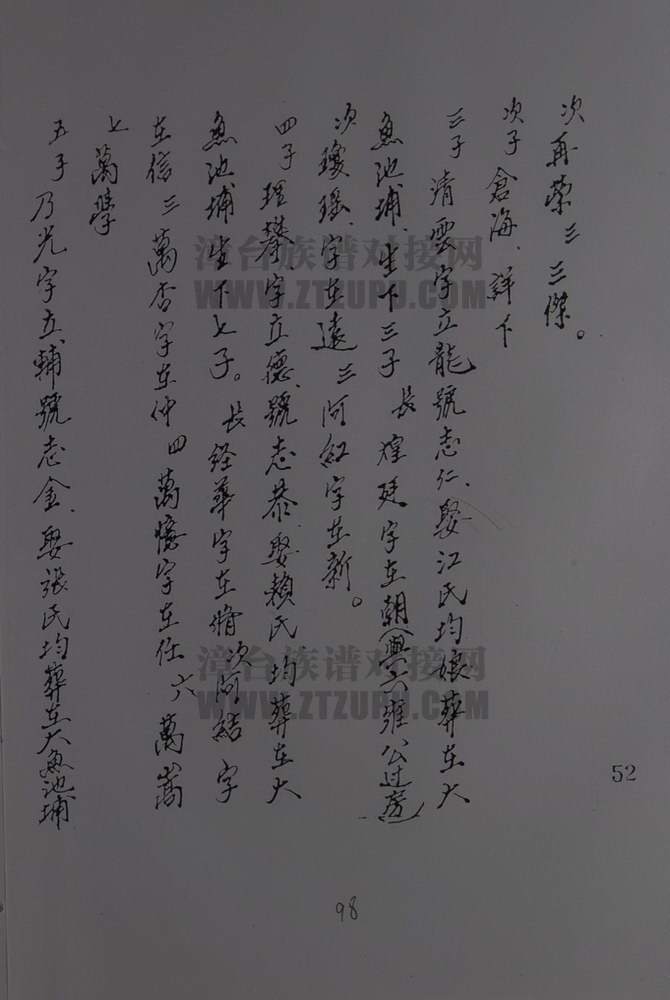 次再荣 三 三傑。
次子倉海、詳下
三子 清雲字立龍號志仁、娶江氏均娘葬在大
魚池埔、生下三子 長煌廷字在朝(與六雍公过房)
次瓊瑶、字在遠 三阿紅字在新。
四子 理攀、字立德、號志恭、娶賴氏 均葬在大
魚池埔生下七子。長經華字在脩 次阿結 字
在信 三萬杏字在仲 四萬懷字在任 六 萬嵩
七 萬學
五子 乃光字立輔號志金、娶張氏均葬在大魚池埔
52
98
漳台族谱对接网
WWW.ZTZUPU.COM
漳台族谱对接网
WWW.ZTZUPU.COM